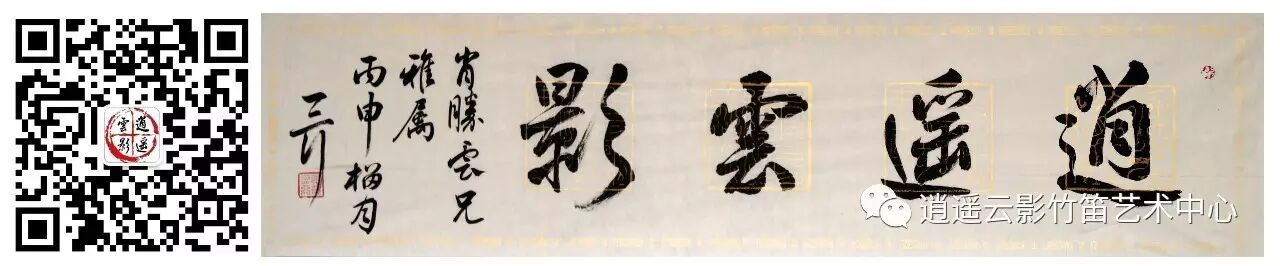 逍遥雲影
逍遥雲影
肖勝云兄
雅属
丙申榴月
逍遥云影竹笛艺术中心